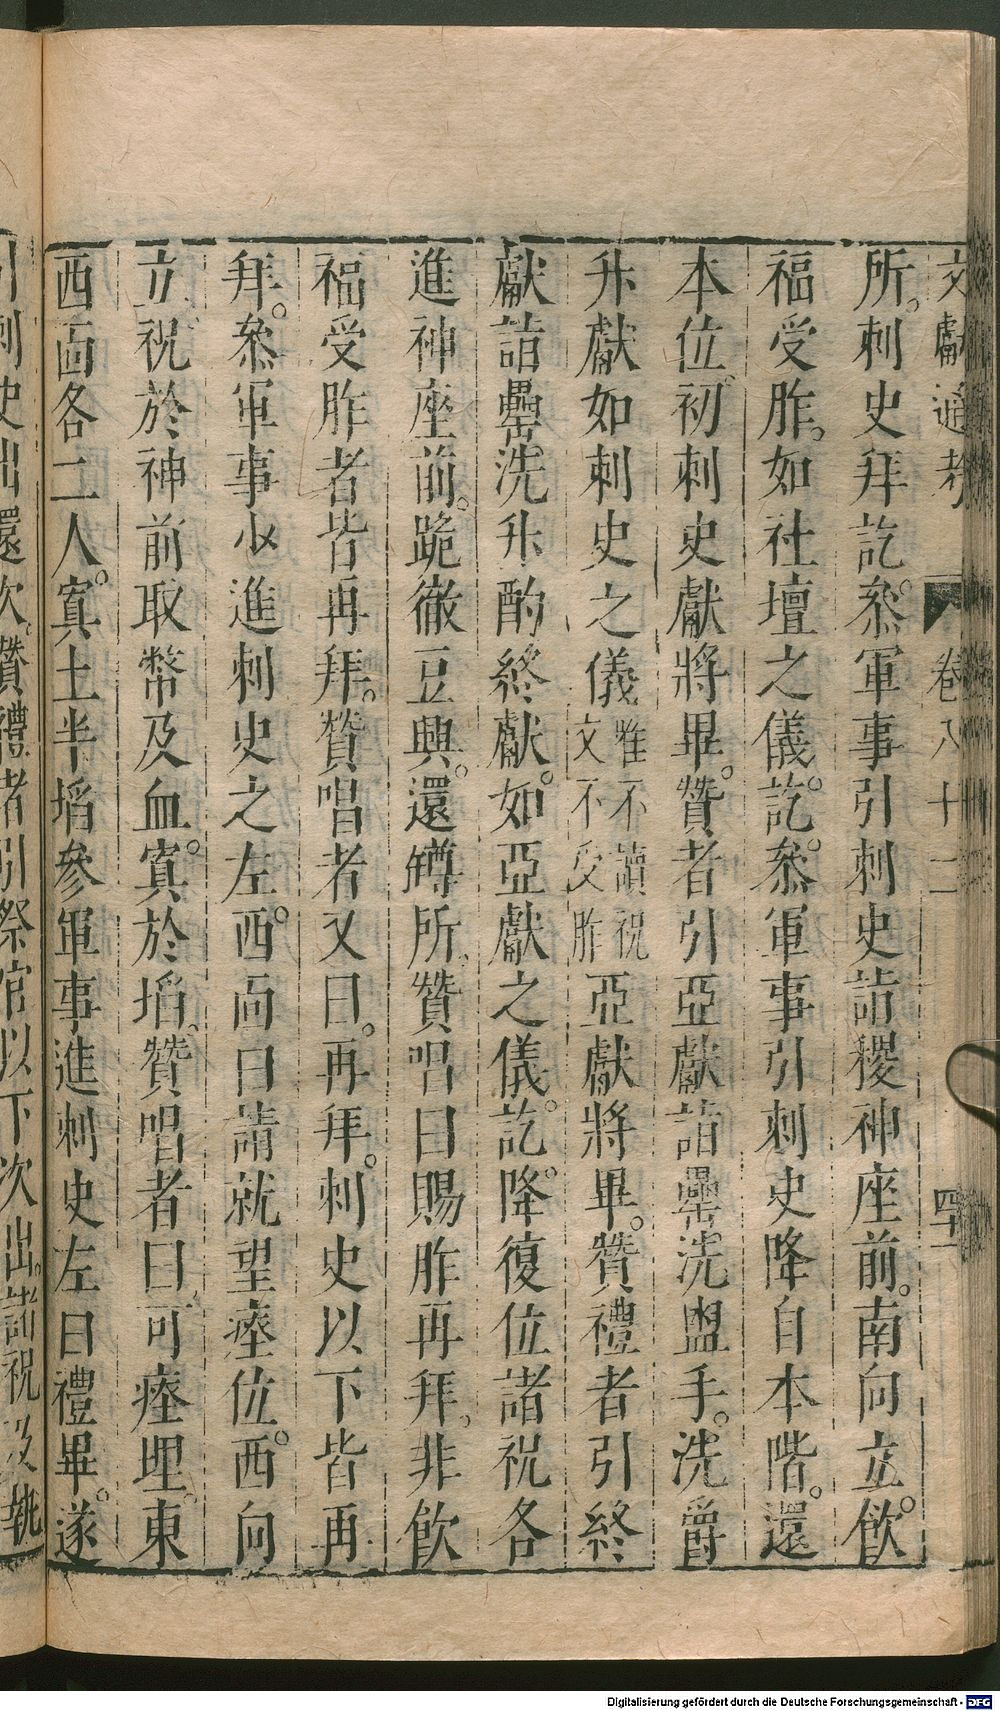 文獻通考 卷八十二 四十一
所。刺史拜訖。叅軍事引刺史詣稷神座前。南向立。飲
福受胙。如社壇之儀。訖。叅軍事引刺史降自本階。還
本位。初刺史獻將畢。贊者引亞獻詣罍洗盥手。洗爵
升獻如刺史之儀惟不讀祝文不受胙亞獻將畢。贊禮者引終
獻詣罍洗升酌終獻。如亞獻之儀。訖。降復位諸祝各
進神座前。跪徹豆興。還罇所。贊唱曰賜胙再拜。非飲
福受胙者皆再拜。贊唱者又曰。再拜。刺史以下皆再
拜。叅軍事少進刺史之左。西靣曰請就望瘞位。西向
立。祝於神前取幣及血。寘於埳。贊唱者曰。可瘞埋。東
西靣各二人。寘土半埳參軍事進刺史左曰禮畢。遂
引刺史出還次。贊禮者引祭官以下次出。諸祝及執
Digitalisierung gefördert durch die Deutsche Forschungsgemeinschaft - DFG